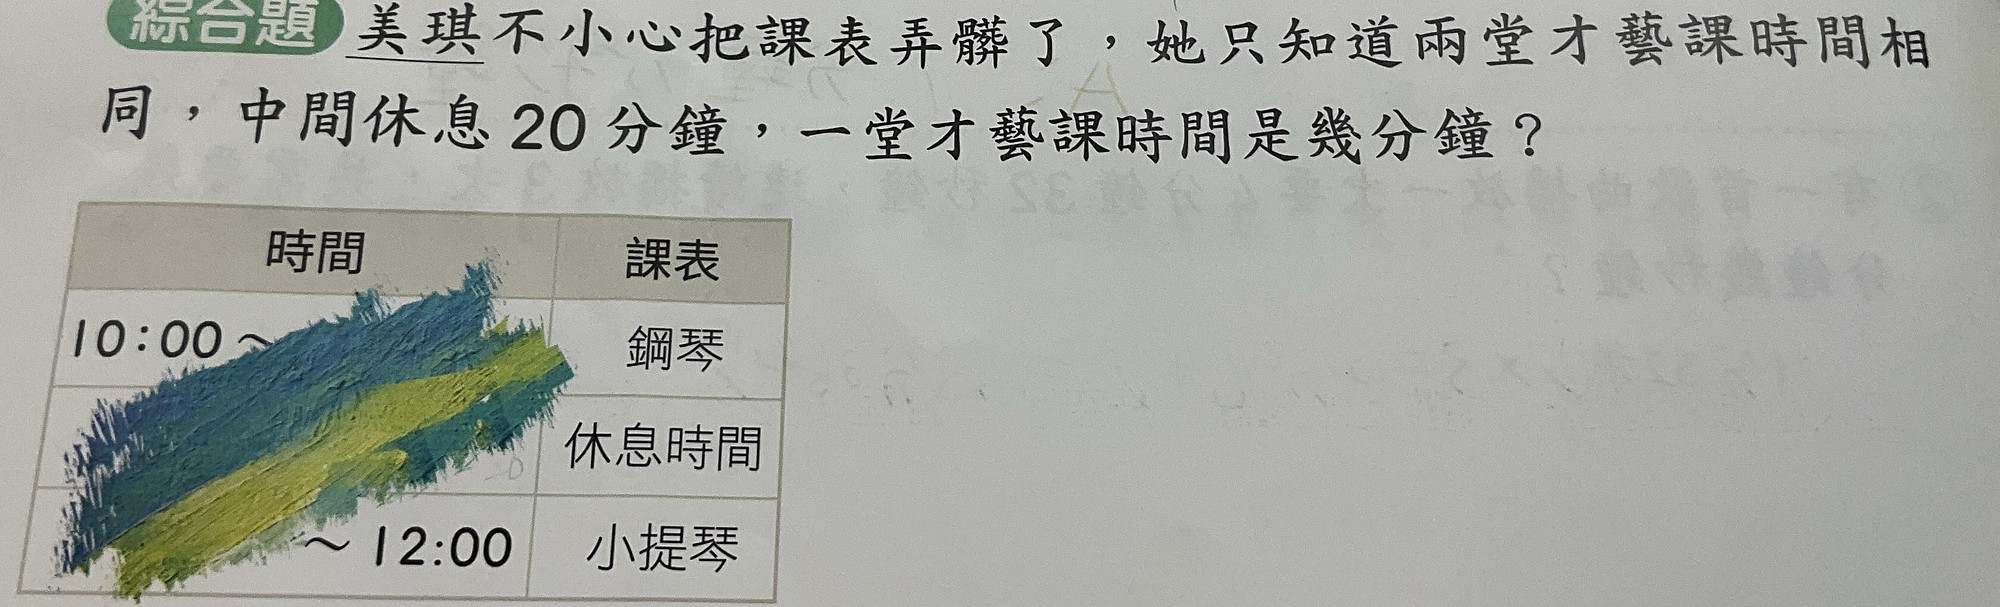 綜合題 美琪不小心把課表弄髒了，她只知道兩堂才藝課時間相
同，中間休息20分鐘，一堂才藝課時間是幾分鐘？
時間 課表
10：00～ 鋼琴
休息時間
～12:00 小提琴